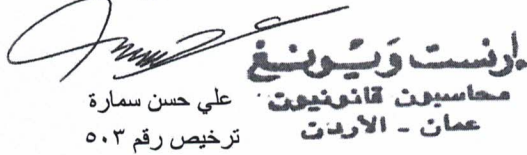 إرنست ويونغ
محاسبون قانونيون
عمان - الأردن
علي حسن سمارة
ترخيص رقم ٥٠٣